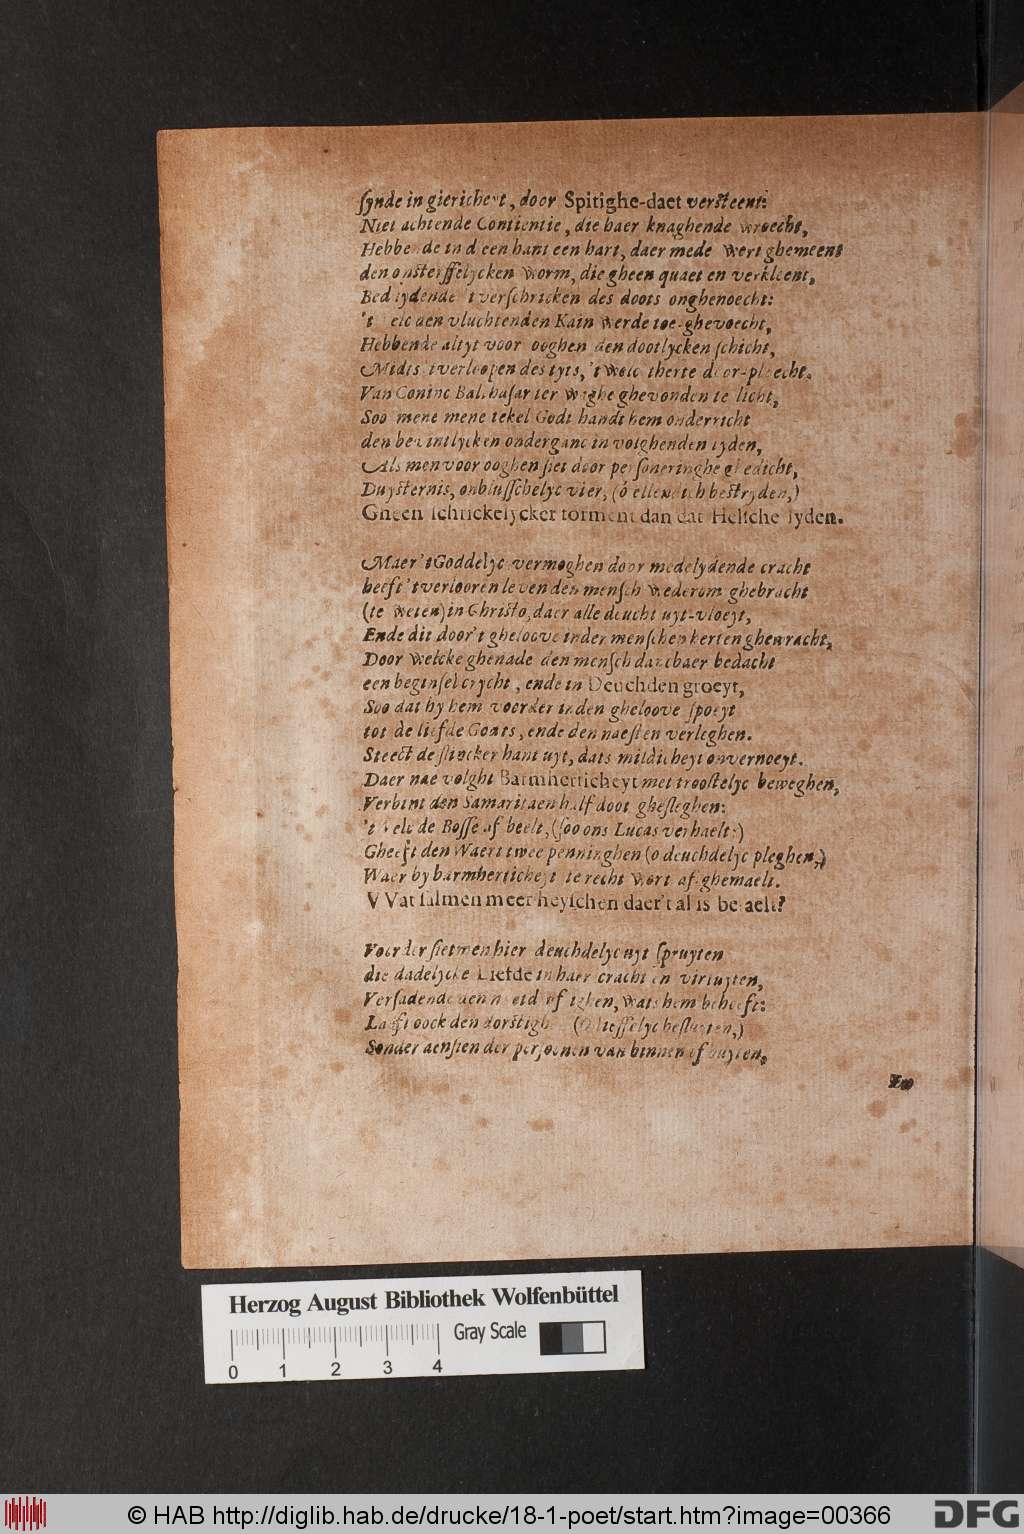 ſynde in giericheyt, door Spitighe-daet verſteent:
Niet achtende Contientie, die haer knaghende wroecht,
Hebbende in d'een hant een hart, daer mede wert ghemeent
den onſterffelycken worm, die gheen quaet en verkleent,
Bediydende 't verſchricken des doots onghenoecht:
't welc den vluchtenden Kain werde toe-ghevoecht,
Hebbende altyt voor ooghen den dootlycken ſchicht,
Midts 't verloopen des tyts, 't welc therte door-ploecht.
Van Coninc Balthaſar ter wighe ghevonden te licht,
Soo mene mene tekel Godt handt hem onderricht
den bevintlycken onderganc in volghenden tyden,
Als men voor ooghen ſiet door perſoneringhe ghedicht,
Duyſternis, onbluſſchelyc vier, (ó ellendich beſtryden,)
Gheen ſchrickelycker torment dan dat Helſche lyden.
Maer 't Goddelyc vermoghen door medelydende cracht
heeft 't verlooren leven den menſch wederom ghebracht
(te weten) in Chriſto, daer alle deucht uyt-vloeyt,
Ende dit door't gheloove inder menſchen herten ghewracht,
Door welcke ghenade den menſch dancbaer bedacht
een beginſel crycht, ende in Deuchden groeyt,
Soo dat hy hem voorder inden gheloove ſpoeyt
tot de liefde Godts, ende den naeſten verleghen.
Steect de ſlincker hant uyt, dats mildicheyt onvernoeyt.
Daer nae volght Barmherticheyt met trooſtelyc beweghen,
Verbint den Samaritaen half doot gheſleghen:
't welc de Boſſe af beelt, (ſoo ons Lucas verhaelt:)
Gheeft den Waert twee penninghen (o deuchdelyc pleghen,)
Waer by barmherticheyt te recht wort af-ghemaelt.
VVat ſalmen meer heyſchen daer't al is betaelt?
Voorder ſietmen hier deuchdelyc uyt ſpruyten
die dadelycke Liefde in haer cracht en virtuyten,
Verſadende den n of tghen, wats hem behoeft:
Laeft oock den dorſtighen (O lieffelyc beſluyten,)
Sonder aenſien der perſoonen van binnen of buyten,
Zw
Herzog August Bibliothek Wolfenbüttel
Gray Scale
0 1 2 3 4
© HAB http://diglib.hab.de/drucke/18-1-poet/start.htm?image=00366
DFG